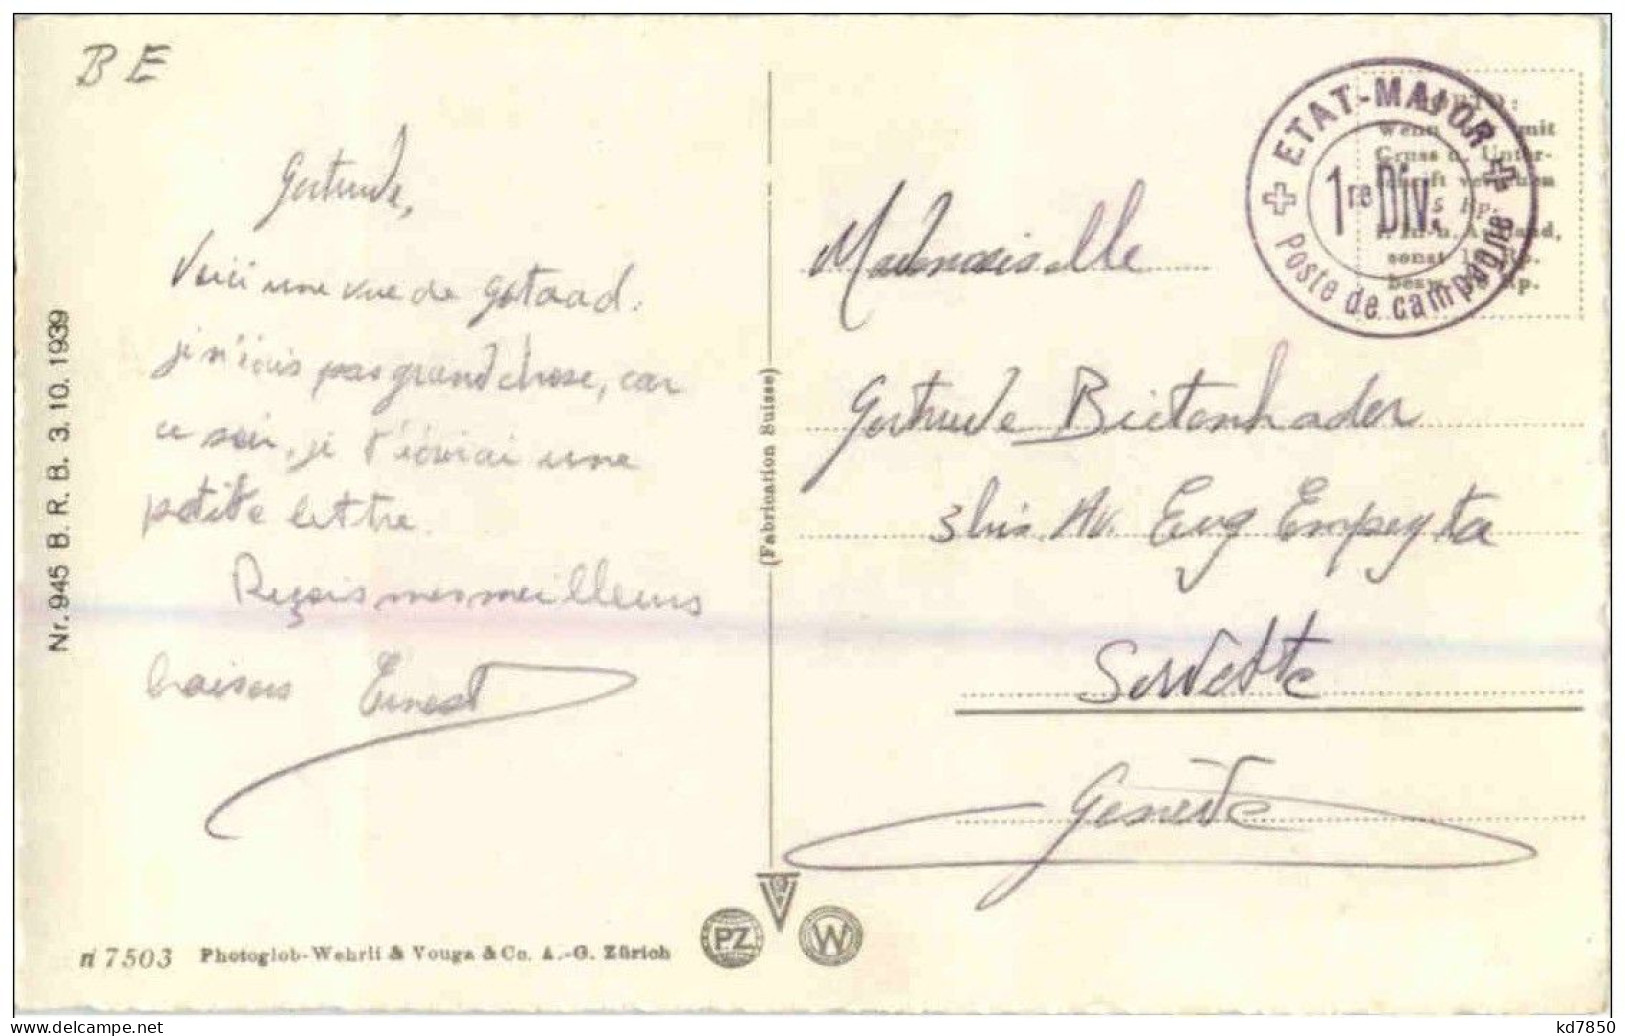 B E
Gertrude,
Voici une vue de Gstaad.
je n'écris pas grand chose, car
ce soir, je t'écrirai une
petite lettre.
Reçois mes meilleurs
baisers Ernest
Nr. 945 B. R. B. 3. 10. 1939
(Fabrication Suisse)
ETAT-MAJOR
1re Div.
Poste de campagne
wenn mit
Gruss u. Unter-
5 Rp.
sonst
Mademoiselle
Gertrude Bietenhader
3bis Av. Eug Empeyta
Servette
Genève
7503 Photoglob-Wehrli & Vouga & Co. A.-G. Zürich
PZ V W
kd7850
delcampe.net